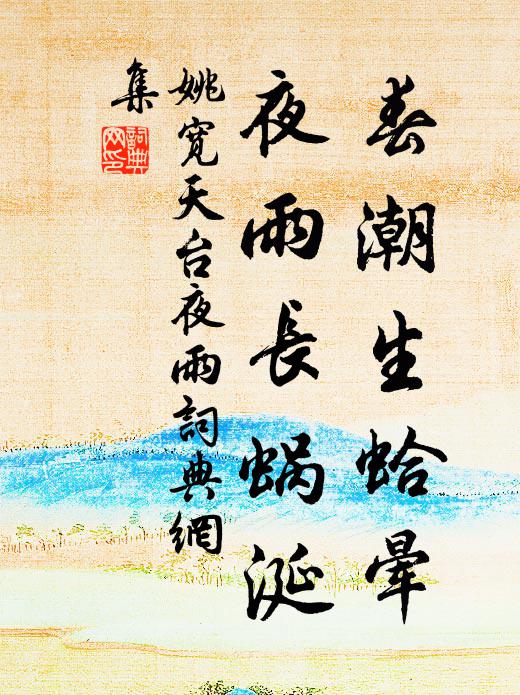 春潮生蛤暈
夜雨長蝸涎
姚寬天台夜雨詞典網
集
詞典
网印